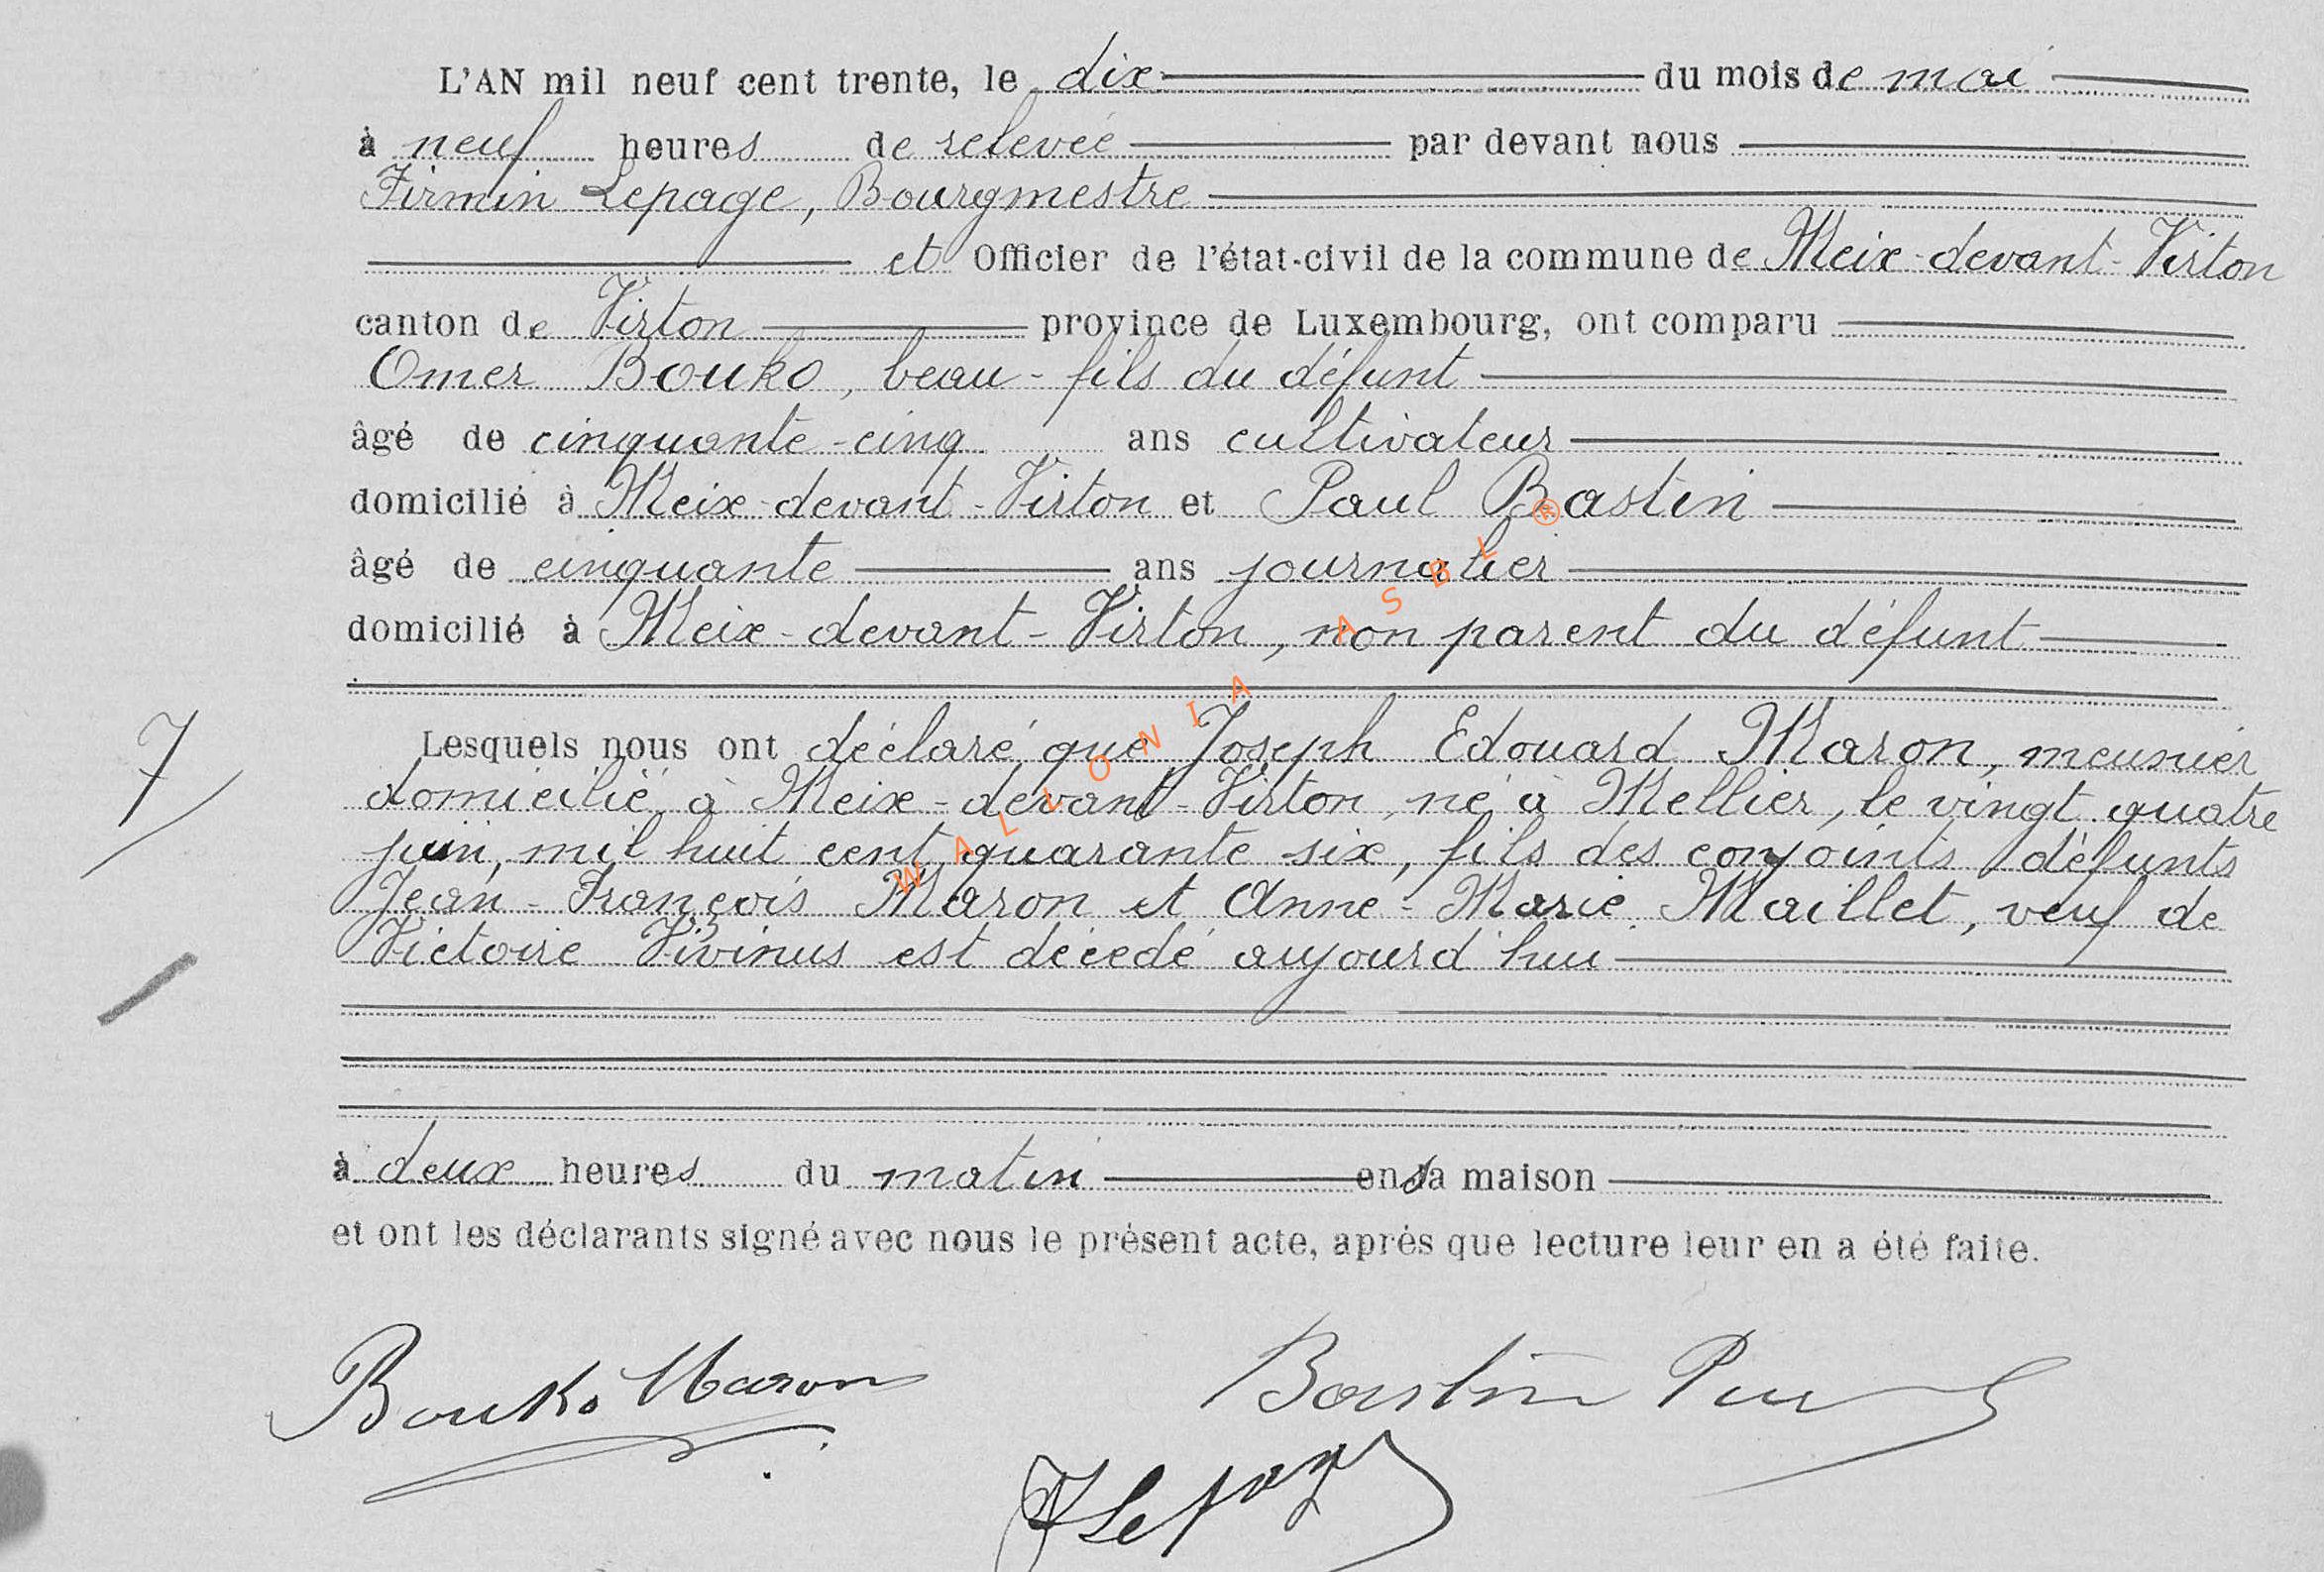 L'AN mil neuf cent trente, le dix du mois de mai
à neuf heures de relevée par devant nous
Firmin Lepage, Bourgmestre
et Officier de l'état-civil de la commune de Meix-devant-Virton
canton de Virton province de Luxembourg, ont comparu
Omer Bouko, beau-fils du défunt
âgé de cinquante-cinq ans cultivateur
domicilié à Meix-devant-Virton et Paul Bastin
âgé de cinquante ans journalier
domicilié à Meix-devant-Virton, non parent du défunt
7
Lesquels nous ont déclaré que Joseph Edouard Maron, meunier
domicilié à Meix-devant-Virton, né à Mellier, le vingt quatre
juin, mil huit cent quarante six, fils des conjoints défunts
Jean-François Maron et Anne-Marie Maillet, veuf de
Victoire Vivinus est décédé aujourd'hui
à deux heures du matin en sa maison
et ont les déclarants signé avec nous le présent acte, après que lecture leur en a été faite.
Bouko Maron
Bastin Paul
F Lepage
WALLONIA ASBL ®